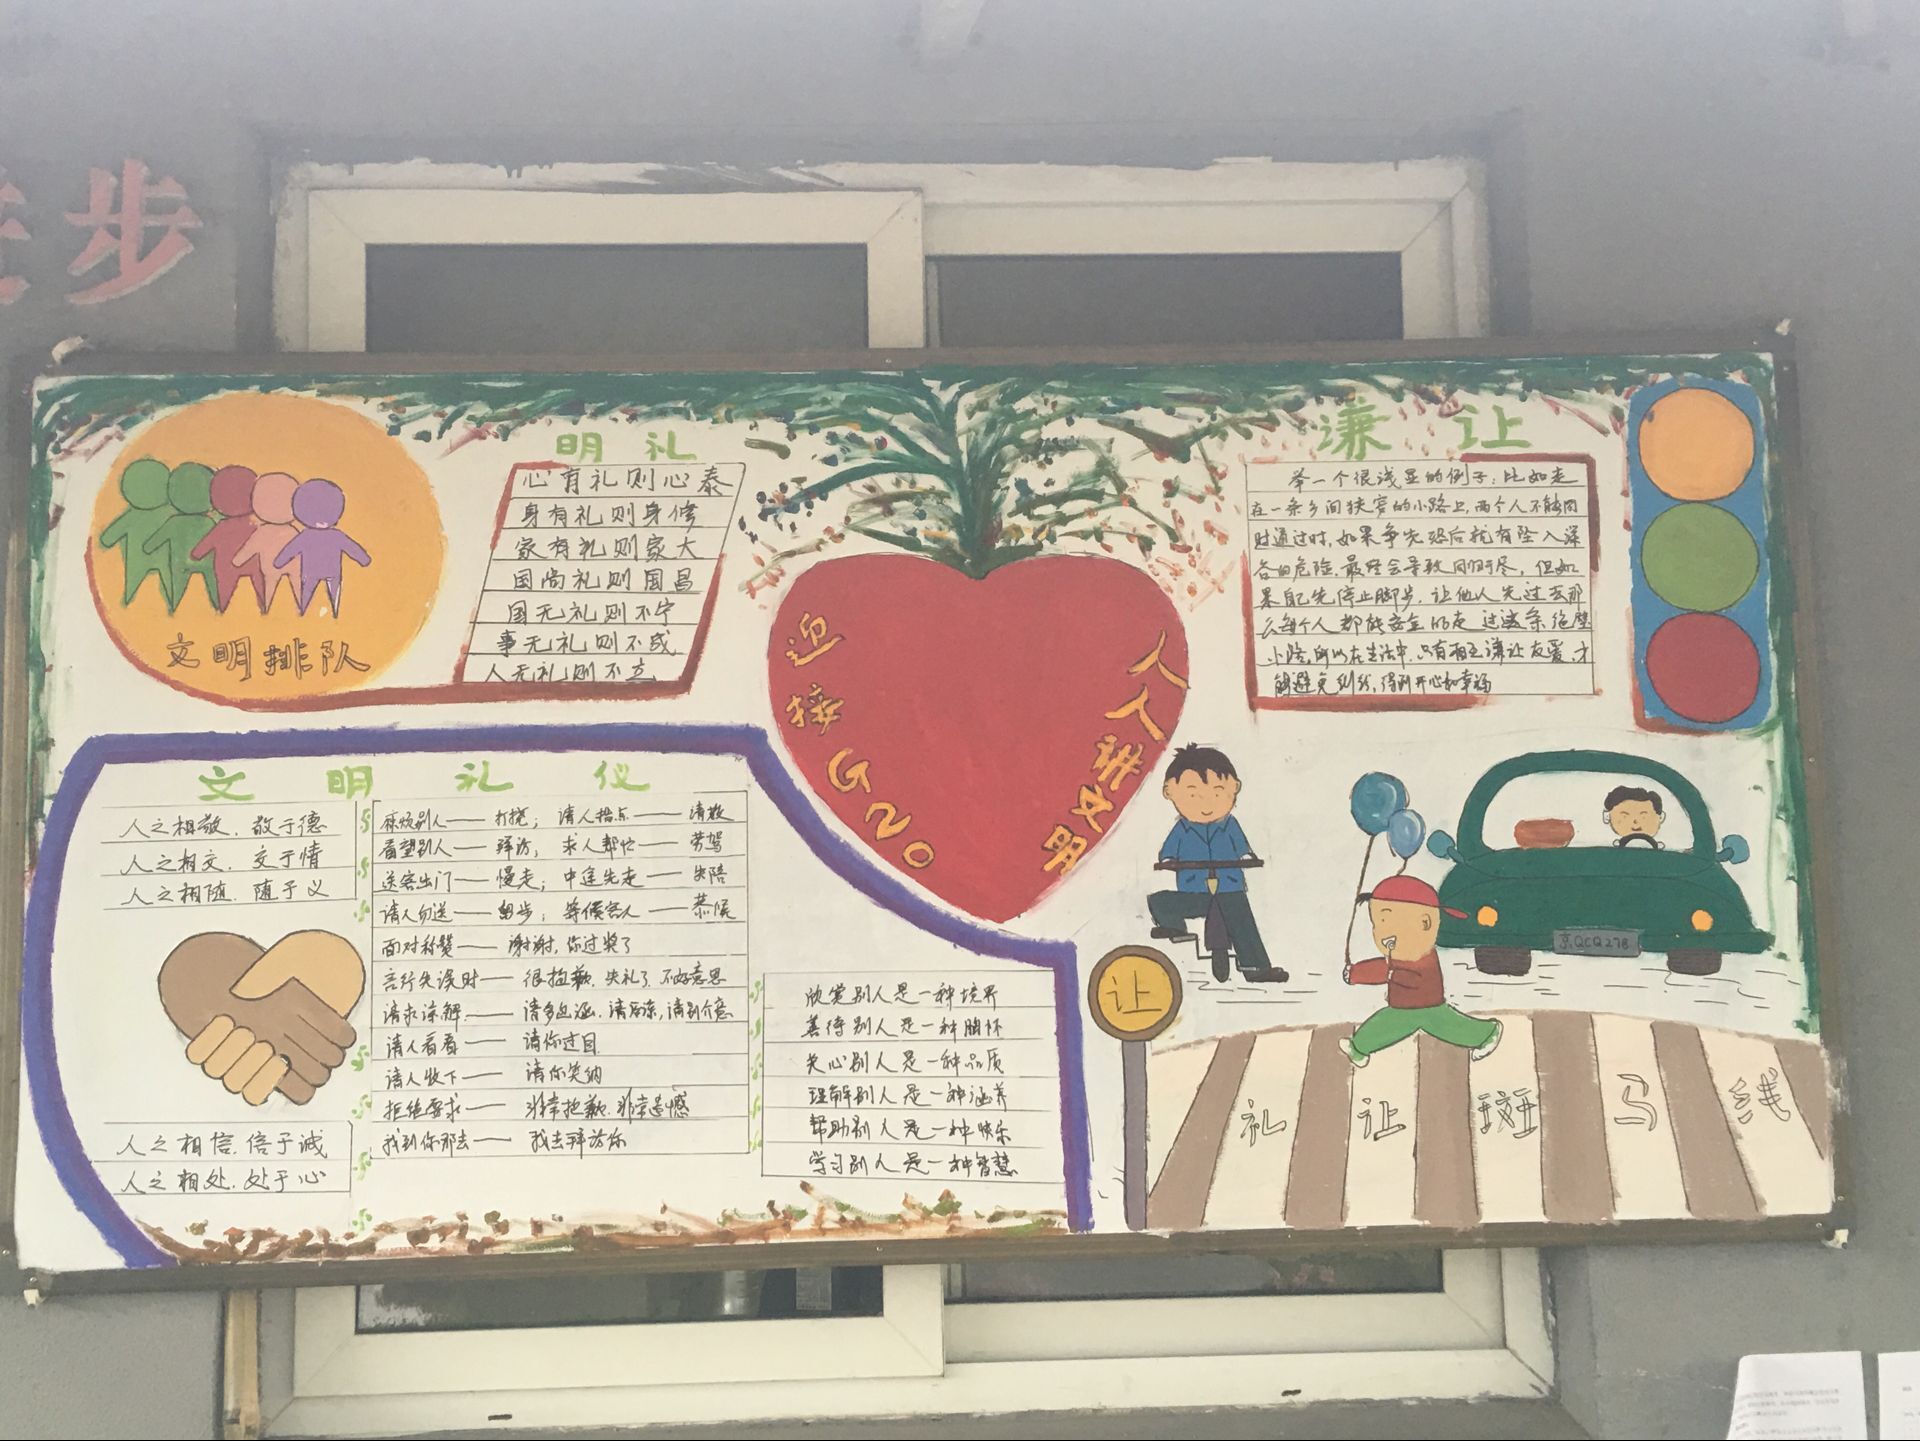 步
明礼
心有礼则心泰
身有礼则身修
家有礼则家大
国尚礼则国昌
国无礼则不宁
事无礼则不成
人无礼则不立
文明排队
迎接G20
人人讲文明
谦让
举一个很浅显的例子:比如走
在一条乡间狭窄的小路上,两个人不能同
时通过时,如果争先恐后就有坠入深
谷的危险,最终会导致同归于尽,但如
果自己先停止脚步,让他人先过去那
么每个人都能安全的走过这条绝壁
小路,所以在生活中,只有相互谦让友爱,才
能避免纠纷,得到开心和幸福
文明礼仪
人之相敬,敬于德
人之相交,交于情
人之相随,随于义
人之相信,信于诚
人之相处,处于心
麻烦别人——打扰; 请人指点——请教
看望别人——拜访; 求人帮忙——劳驾
送客出门——慢走; 中途先走——失陪
请人勿送——留步; 等候客人——恭候
面对称赞——谢谢,你过奖了
言行失误时——很抱歉,失礼了,不好意思
请求谅解——请多包涵,请原谅,请别介意
请人看看——请你过目
请人收下——请你笑纳
拒绝要求——非常抱歉,非常遗憾
我到你那去——我去拜访你
欣赏别人是一种境界
善待别人是一种胸怀
关心别人是一种品质
理解别人是一种涵养
帮助别人是一种快乐
学习别人是一种智慧
京QCQ278
让
礼让斑马线